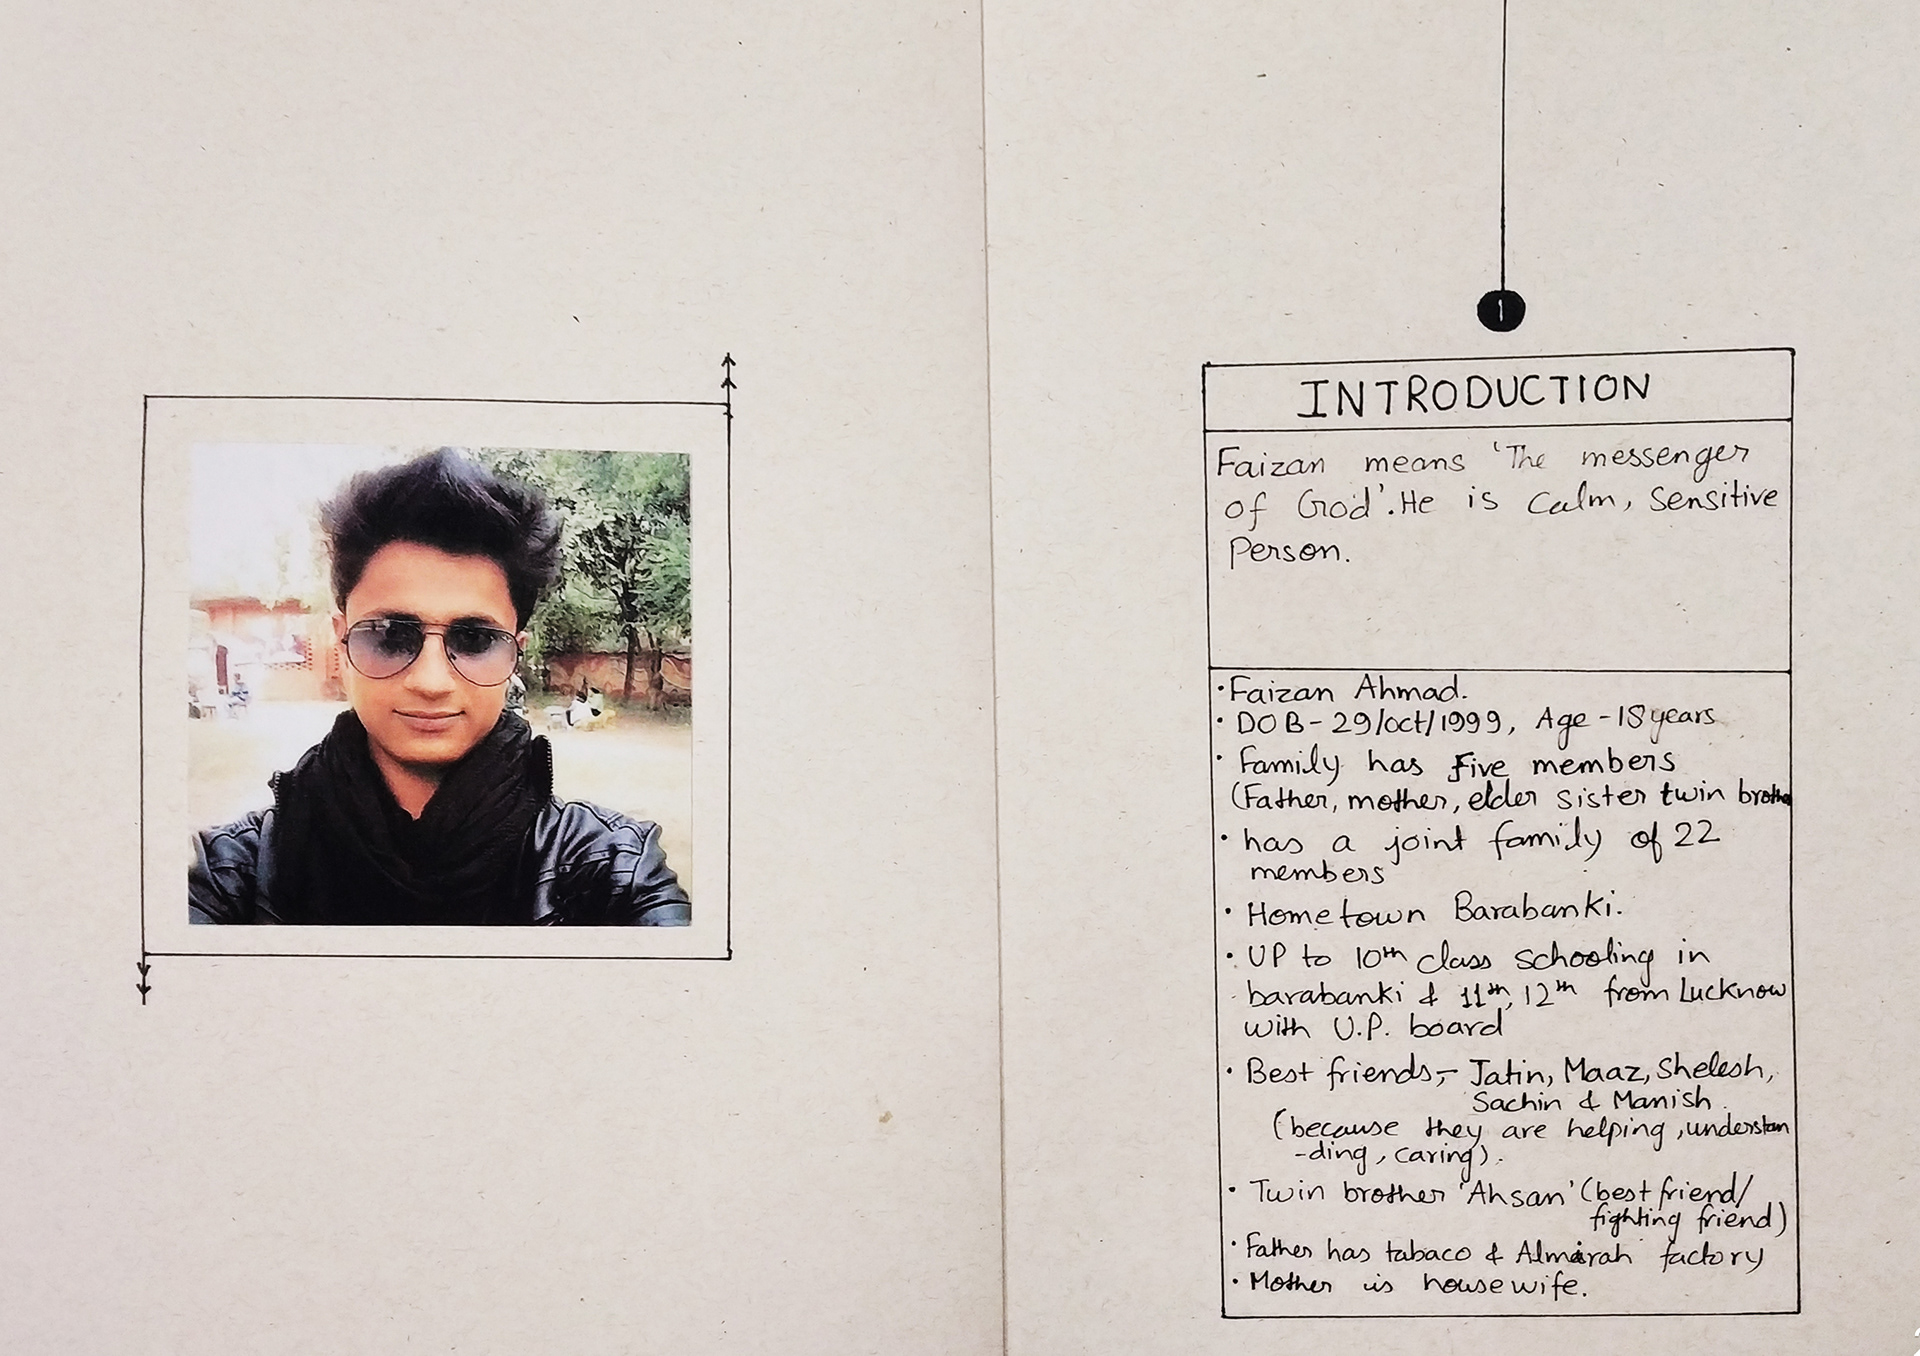 1
INTRODUCTION
Faizan means 'The messenger
of God'. He is calm, sensitive
Person.
• Faizan Ahmad.
• DOB - 29/oct/1999, Age - 18 years
• Family has Five members
(Father, mother, elder sister twin brother
• has a joint family of 22
members
• Hometown Barabanki.
• UP to 10th class schooling in
barabanki & 11th, 12th from Lucknow
with U.P. board
• Best friends,- Jatin, Maaz, Shelesh,
Sachin & Manish.
(because they are helping, understan
-ding, caring).
• Twin brother 'Ahsan' (best friend/
fighting friend)
• Father has tabaco & Almirah factory
• Mother is housewife.